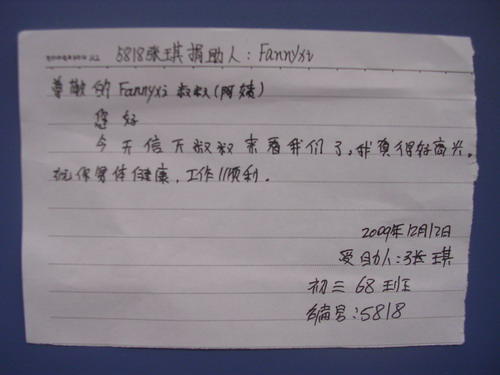 5818张琪捐助人：Fannyxi
尊敬的Fannyxi叔叔(阿姨)
您好
今天信天叔叔来看我们了，我觉得好高兴。
祝你身体健康，工作顺利。
2009年12月12日
受助人：张琪
初三68班
编号：5818